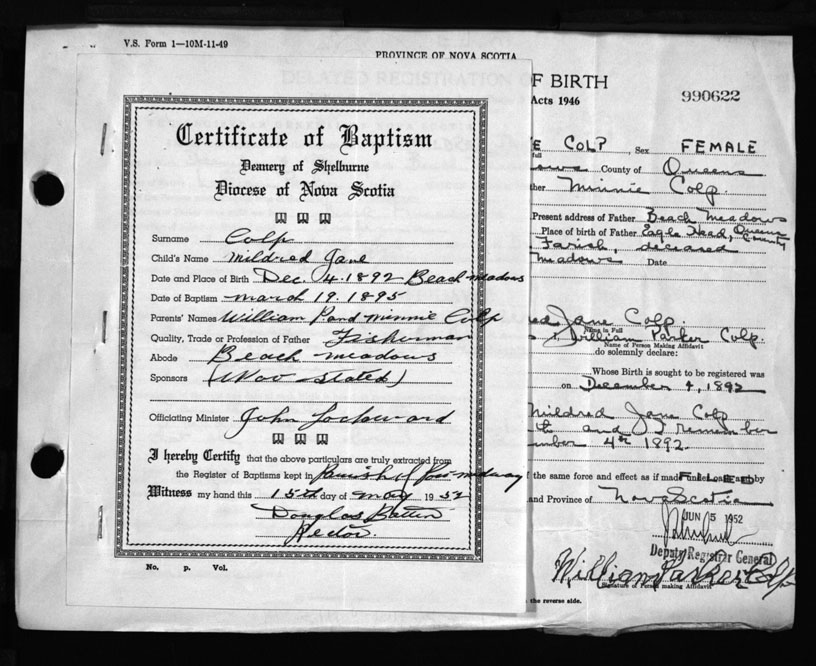 V.S. Form 1—10M-11-49
PROVINCE OF NOVA SCOTIA
DELAYED REGISTRATION OF BIRTH
Acts 1946
990622
Certificate of Baptism
Deanery of Shelburne
Diocese of Nova Scotia
Surname Colp
Child's Name Mildred Jane
Date and Place of Birth Dec. 4. 1892 Beach meadows
Date of Baptism march 19. 1895
Parents' Names William P and Minnie Colp
Quality, Trade or Profession of Father Fisherman
Abode Beach meadows
Sponsors (Nov stated)
Officiating Minister John Lockward
I hereby Certify that the above particulars are truly extracted from
the Register of Baptisms kept in Parish of
Witness my hand this 15th day of may 1952
Douglas Batten
Rector.
No. p. Vol.
E COLP Sex FEMALE
full
ows County of Queens
ther Minnie Colp.
Present address of Father Beach Meadows
Place of birth of Father Eagle Head, Queens County
Farish, deceased
Meadows Date
red Jane Colp.
Name in Full
William Parker Colp.
Name of Person Making Affidavit
do solemnly declare:
Whose Birth is sought to be registered was
on December 4, 1892
Mildred Jane Colp
and I remember
mber 4th 1892.
f the same force and effect as if made under oath and by
FILED
and Province of Nova Scotia
JUN 5 1952
Deputy Registrar General
William Parker Colp
Signature of Person making Affidavit
the reverse side.